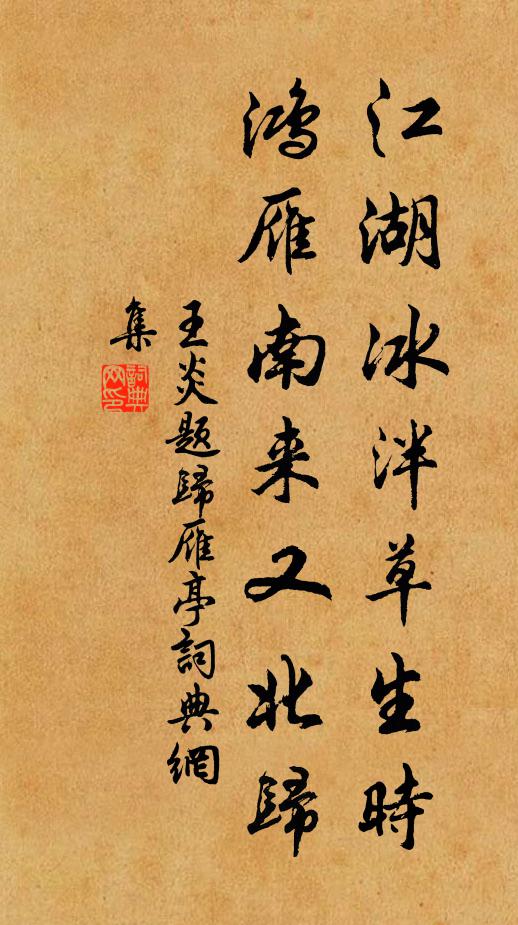 江湖冰泮草生時
鴻雁南来又北歸
王炎題歸雁亭詞典網
集
詞典
网印